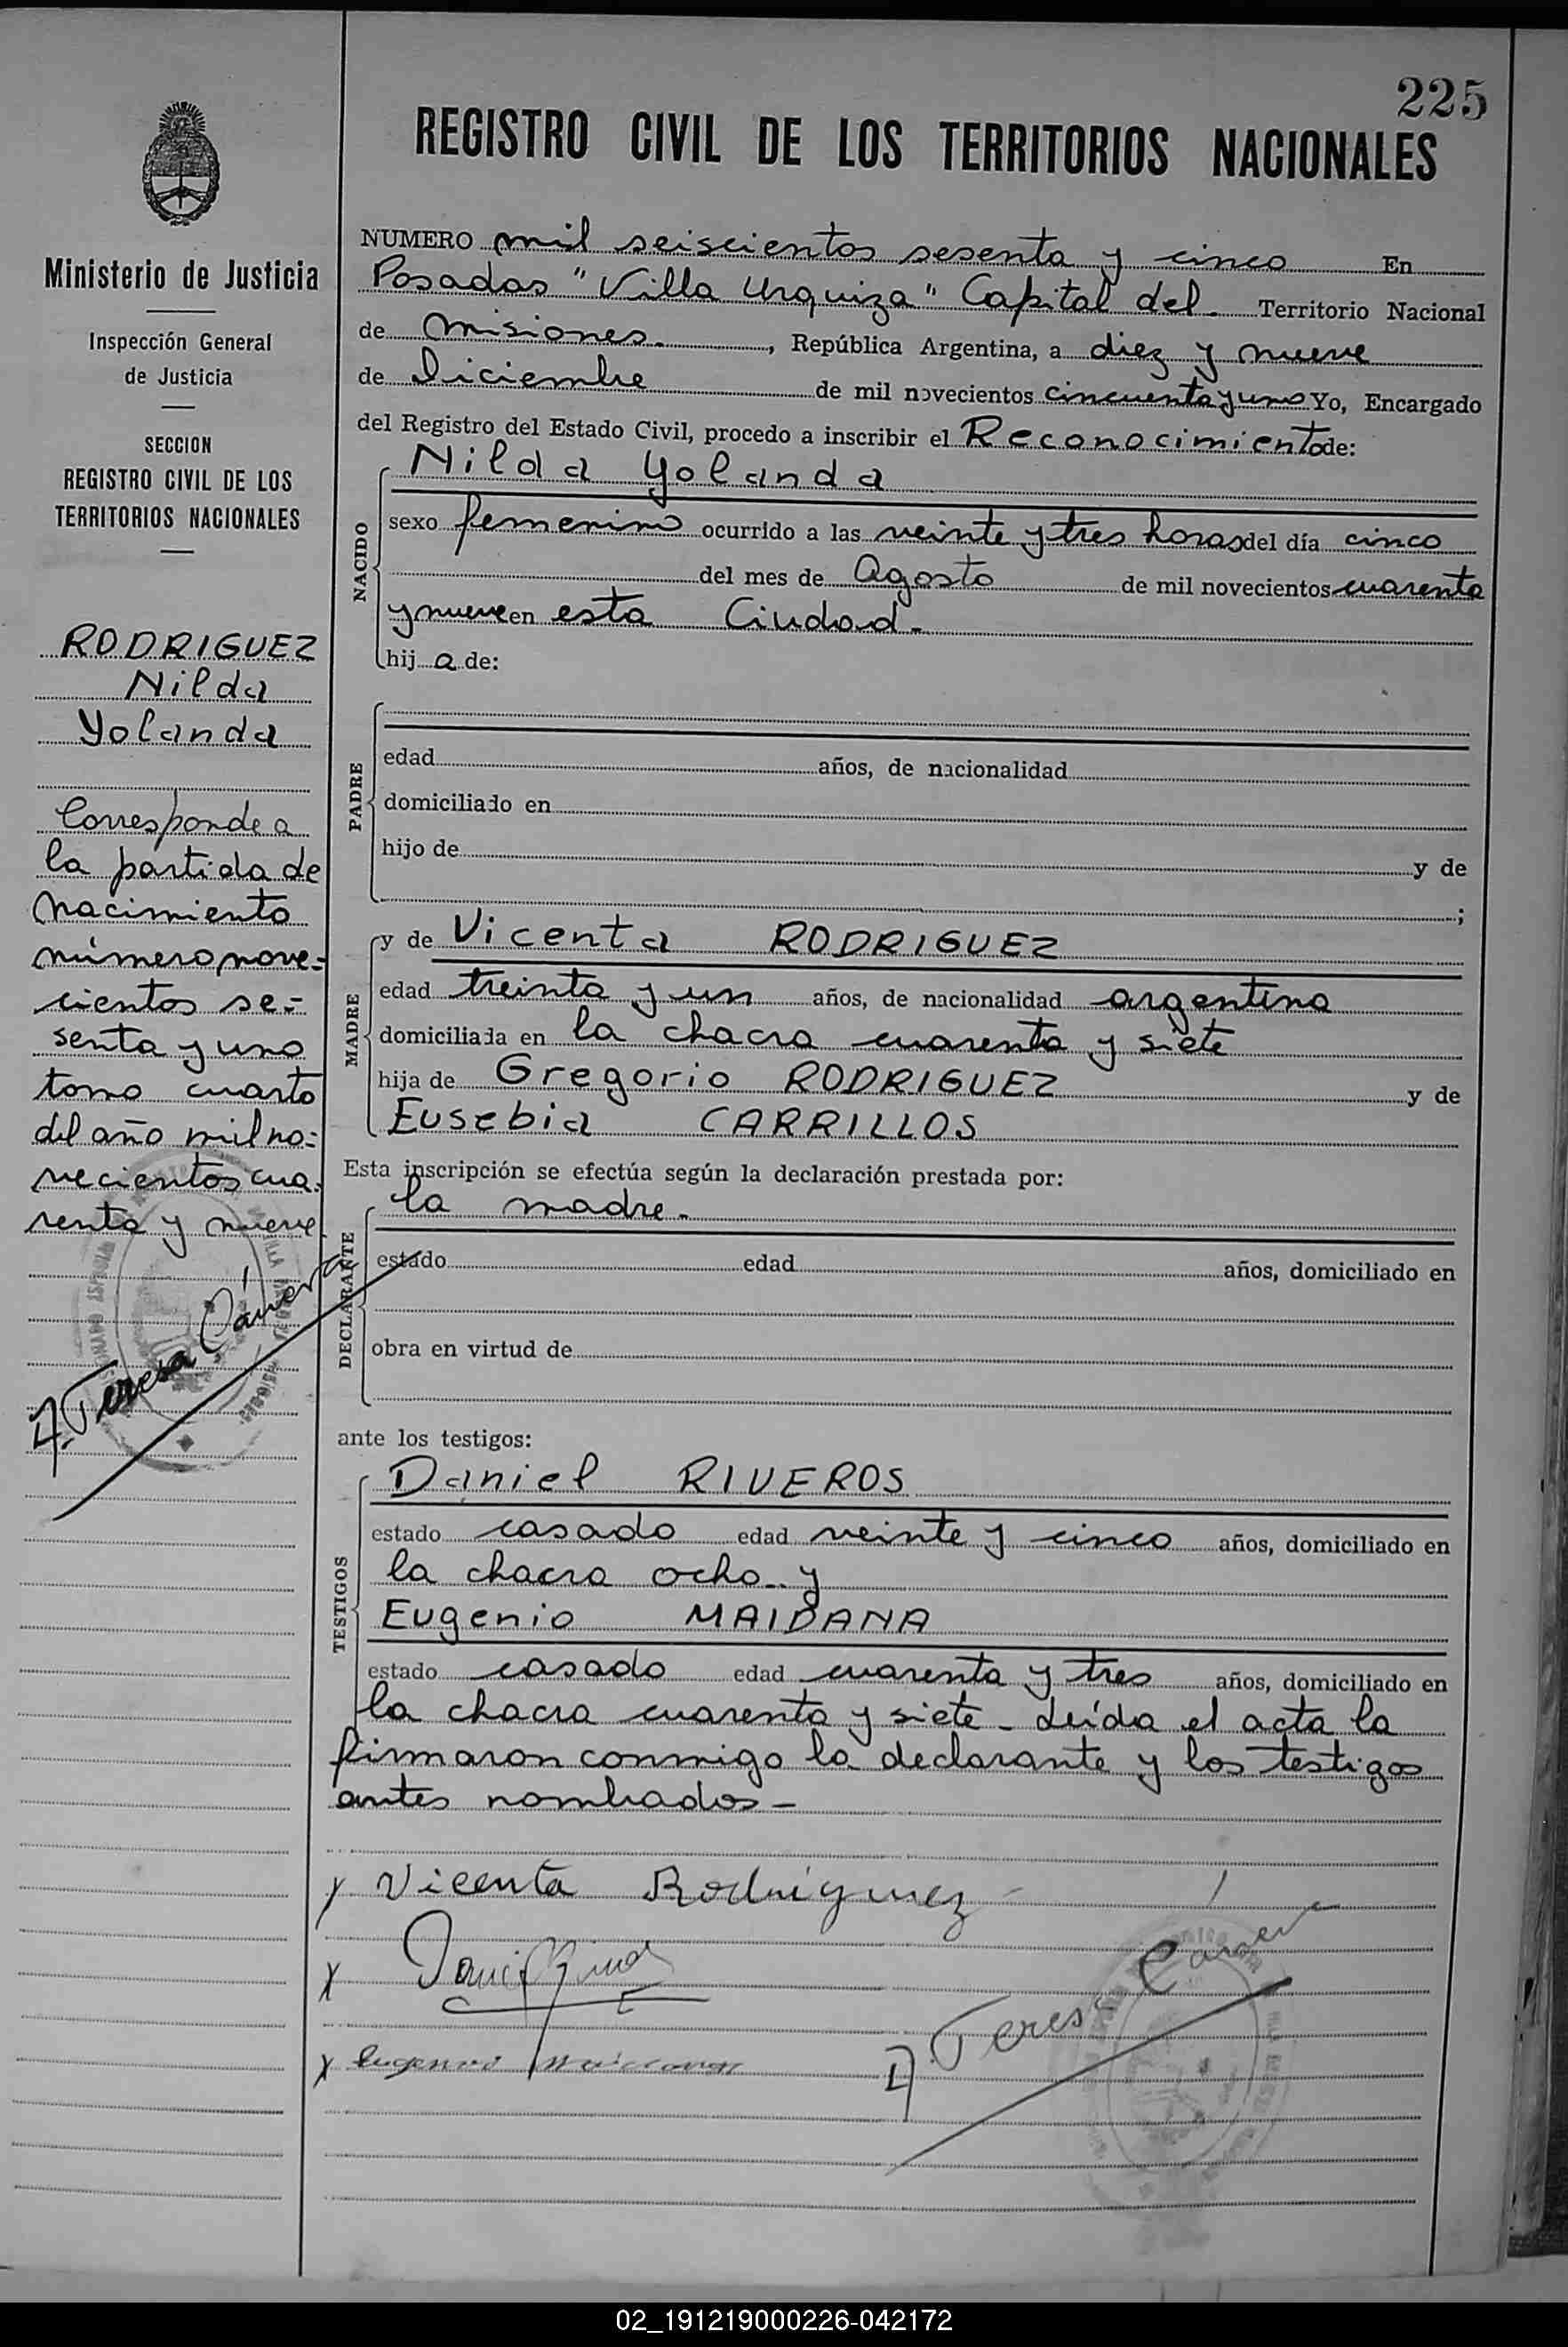 225
REGISTRO CIVIL DE LOS TERRITORIOS NACIONALES
Ministerio de Justicia
Inspección General
de Justicia
SECCION
REGISTRO CIVIL DE LOS
TERRITORIOS NACIONALES
RODRIGUEZ
Nilda
Yolanda
Corresponde a
la partida de
nacimiento
número nove-
cientos se-
senta y uno
tomo cuarto
del año mil no-
vecientos cua-
renta y nueve
Teresa
NUMERO mil seiscientos sesenta y cinco En
Posadas "Villa Urquiza" Capital del Territorio Nacional
de Misiones. , República Argentina, a diez y nueve
de Diciembre de mil novecientos cincuenta y uno Yo, Encargado
del Registro del Estado Civil, procedo a inscribir el Reconocimiento de:
NACIDO
Nilda Yolanda
sexo femenino ocurrido a las veinte y tres horas del día cinco
del mes de Agosto de mil novecientos cuarenta
y nueve en esta Ciudad.
hij a de:
PADRE
edad años, de nacionalidad
domiciliado en
hijo de y de
;
MADRE
y de Vicenta RODRIGUEZ
edad treinta y un años, de nacionalidad argentina
domiciliada en la chacra cuarenta y siete
hija de Gregorio RODRIGUEZ y de
Eusebia CARRILLOS
Esta inscripción se efectúa según la declaración prestada por:
DECLARANTE
la madre.
estado edad años, domiciliado en
obra en virtud de
ante los testigos:
TESTIGOS
Daniel RIVEROS
estado casado edad veinte y cinco años, domiciliado en
la chacra ocho y
Eugenio MAIDANA
estado casado edad cuarenta y tres años, domiciliado en
la chacra cuarenta y siete - Leída el acta la
firmaron conmigo la declarante y los testigos
antes nombrados -
x Vicenta Rodriguez
x
x Eugenio Maidana
Teresa
02_191219000226-042172